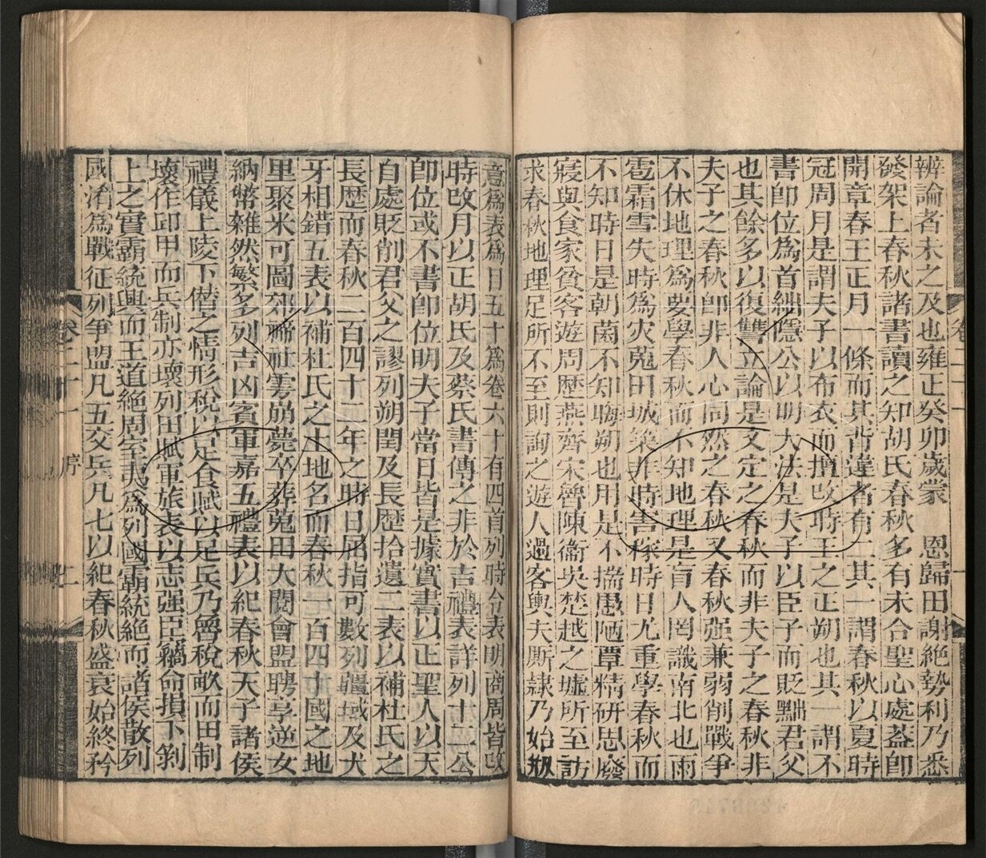 辨論者未之及也雍正癸卯歲蒙　恩歸田謝絶勢利乃悉
發架上春秋諸書讀之知胡氏春秋多有未合聖心處葢卽
開章春王正月一條而其背違者有二其一謂春秋以夏時
冠周月是謂夫子以布衣而擅改時王之正朔也其一謂不
書卽位為首絀隱公以明大法是夫子以臣子而貶黜君父
也其餘多以復讐立論是文定之春秋而非夫子之春秋非
夫子之春秋卽非人心同然之春秋又春秋强兼弱削戰爭
不休地理為要學春秋而不知地理是盲人罔識南北也雨
雹霜雪失時為灾蒐田城築非時書𥡴時日尤重學春秋而
不知時日是朝菌不知晦朔也用是不揣愚陋覃精研思廢
寢與食家貧客遊周歴燕齊宋魯陳衞吳楚越之墟所至訪
求春秋地理足所不至則詢之遊人過客輿夫厮隷乃始𣃔
意為表為目五十為卷六十有四首列時令表明商周皆改
時改月以正胡氏及蔡氏書傳之非於吉禮表詳列十二公
卽位或不書卽位明夫子當日皆是據實書以正聖人以天
自處貶削君父之謬列朔閏及長歴拾遺二表以補杜氏之
長歴而春秋二百四十二年之時日屈指可數列疆域及犬
牙相錯五表以補杜氏之土地名而春秋一百四十國之地
里聚米可圖郊禘社雩崩薨卒葬蒐田大閱會盟聘享逆女
納幣雜然繁多列吉凶賓軍嘉五禮表以紀春秋天子諸侯
禮儀上陵下僭之情形稅以足食賦以足兵乃魯稅畝而田制
壞作邱甲而兵制亦壞列田賦軍旅表以志强臣竊命損下剝
上之實霸統興而王道絶周室夷為列國霸統絶而諸侯散列
國淆為戰征列爭盟凡五交兵凡七以紀春秋盛衰始終矜
卷二十一　序　一